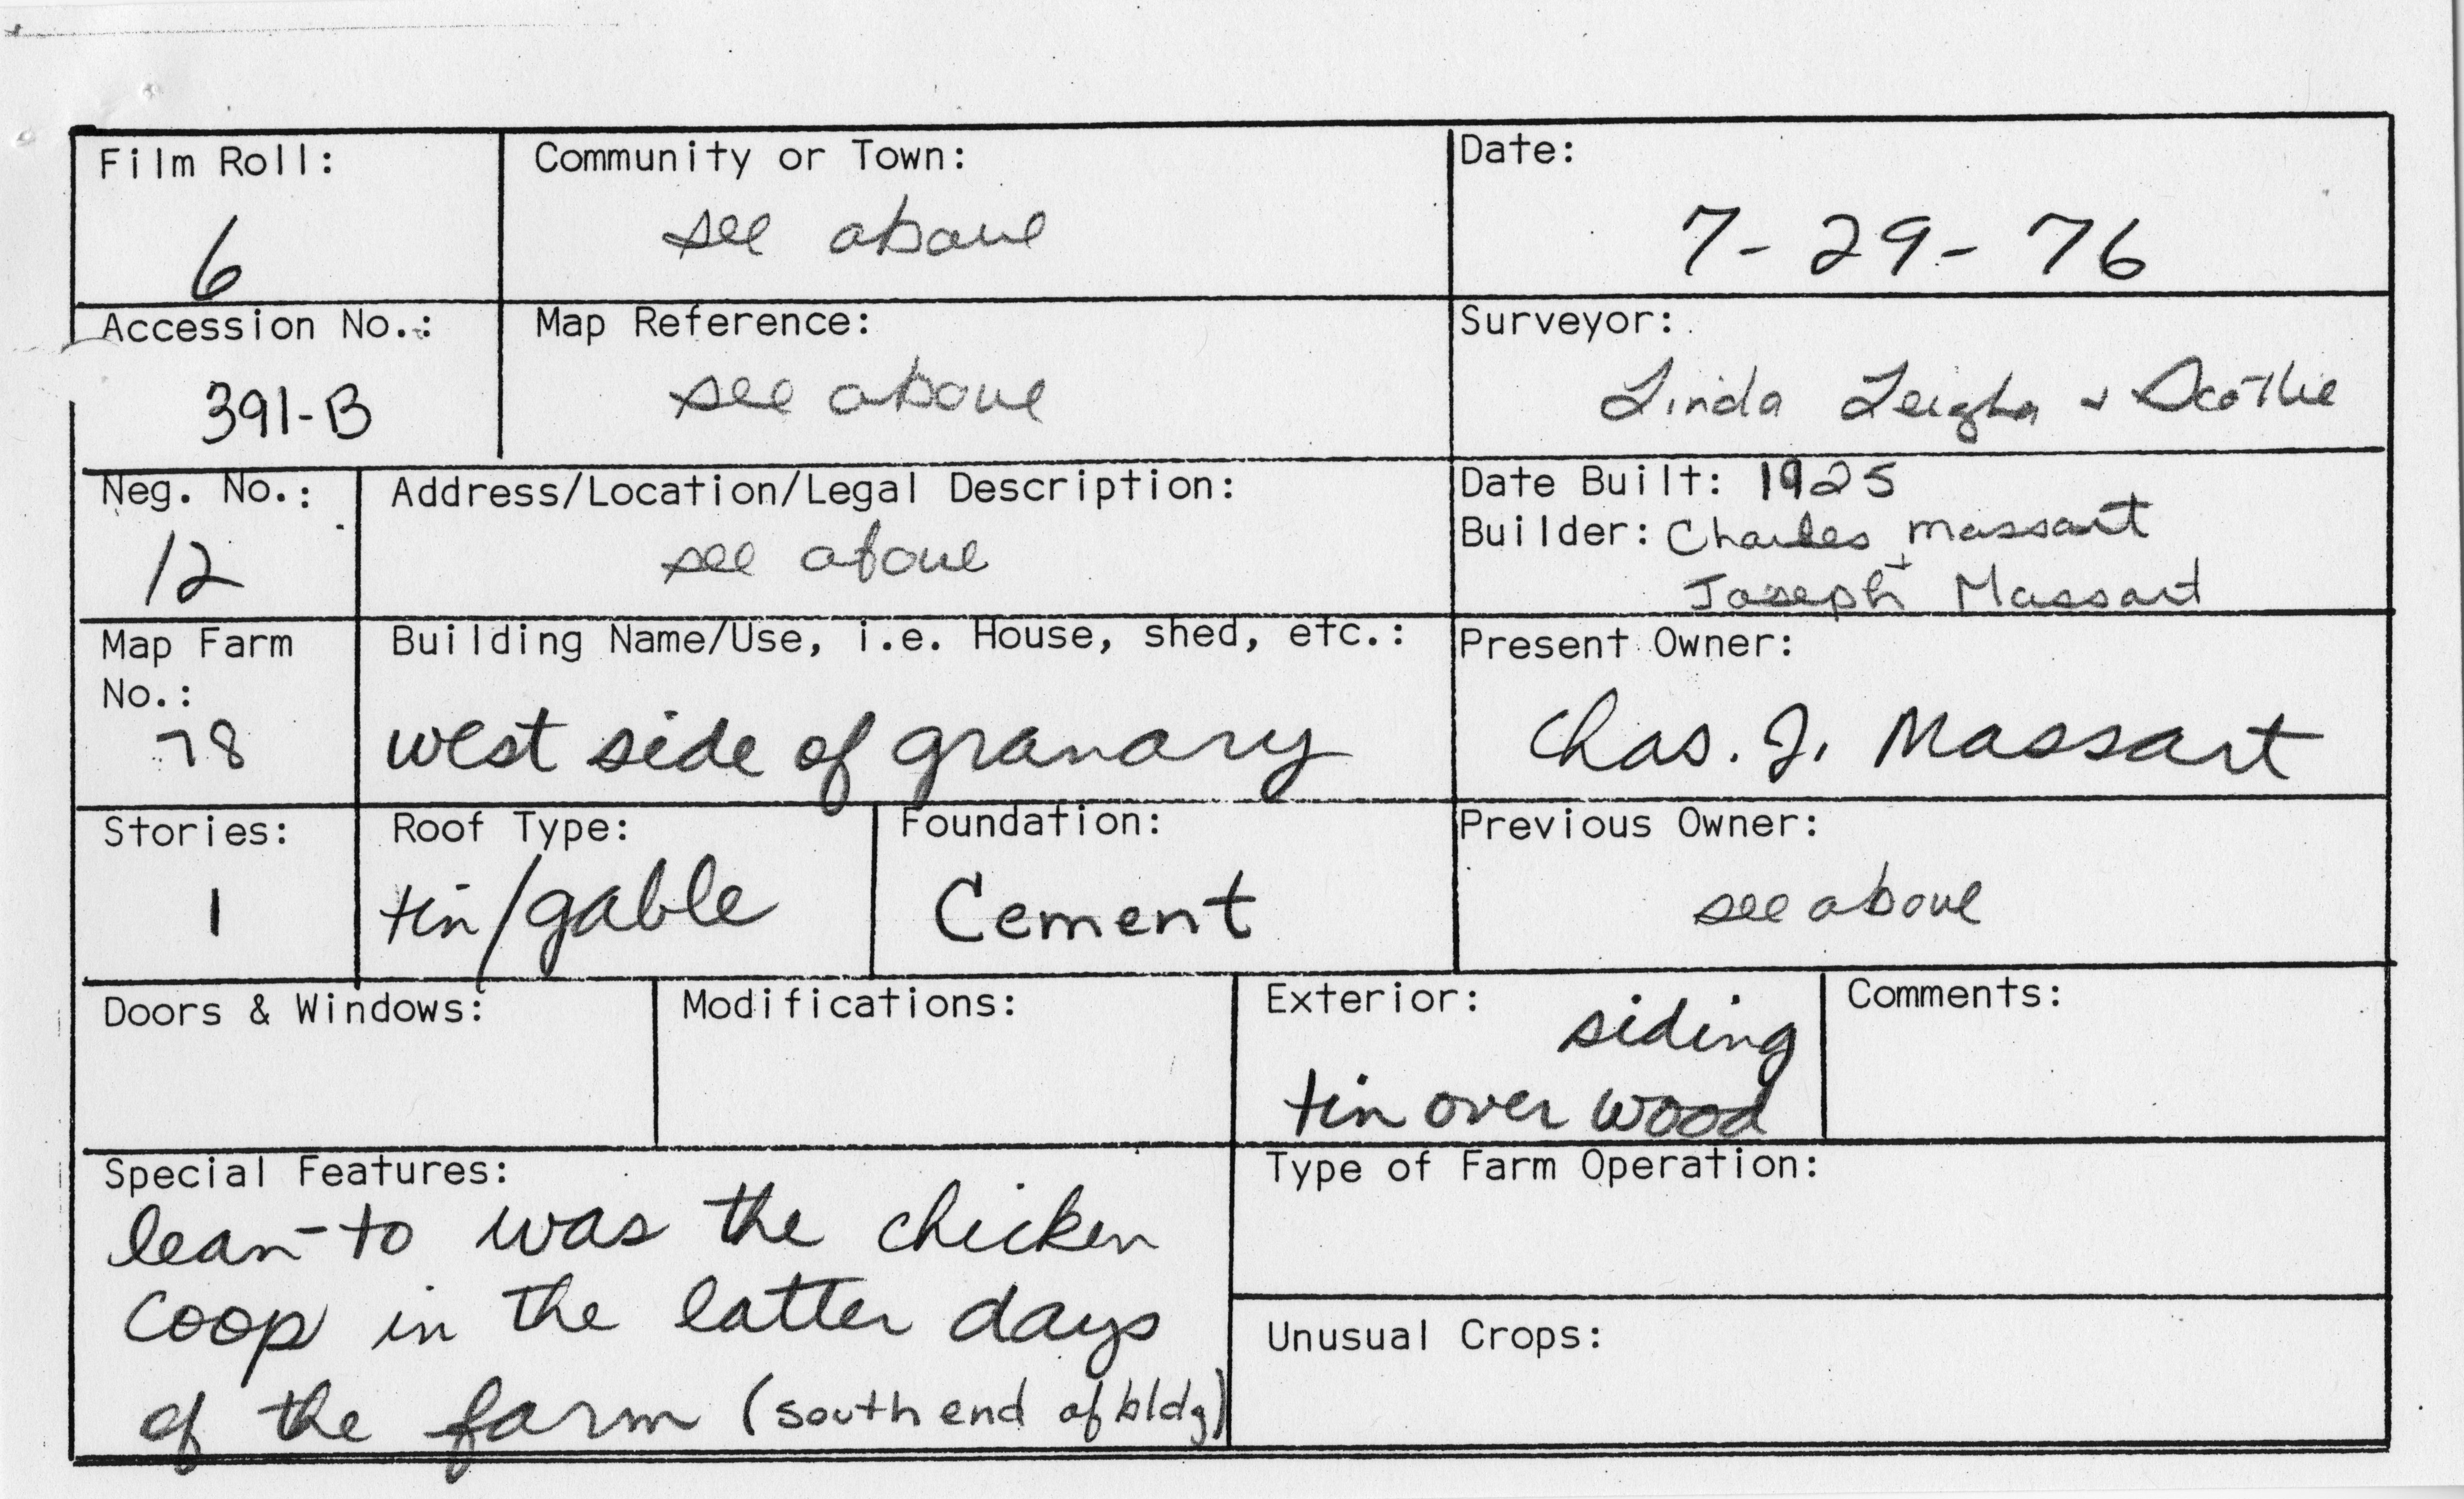 Film Roll:
6
Community or Town:
see above
Date:
7-29-76
Accession No.:
391-B
Map Reference:
see above
Surveyor:
Linda Leigha + Scottie
Neg. No.:
12
Address/Location/Legal Description:
see above
Date Built: 1925
Builder: Charles Massart +
Joseph Massart
Map Farm
No.:
78
Building Name/Use, i.e. House, shed, etc.:
west side of granary
Present Owner:
Chas. J. Massart
Stories:
1
Roof Type:
tin/gable
Foundation:
Cement
Previous Owner:
see above
Doors & Windows:
Modifications:
Exterior:
siding
tin over wood
Comments:
Special Features:
lean-to was the chicken
coop in the latter days
of the farm (south end of bldg)
Type of Farm Operation:
Unusual Crops: